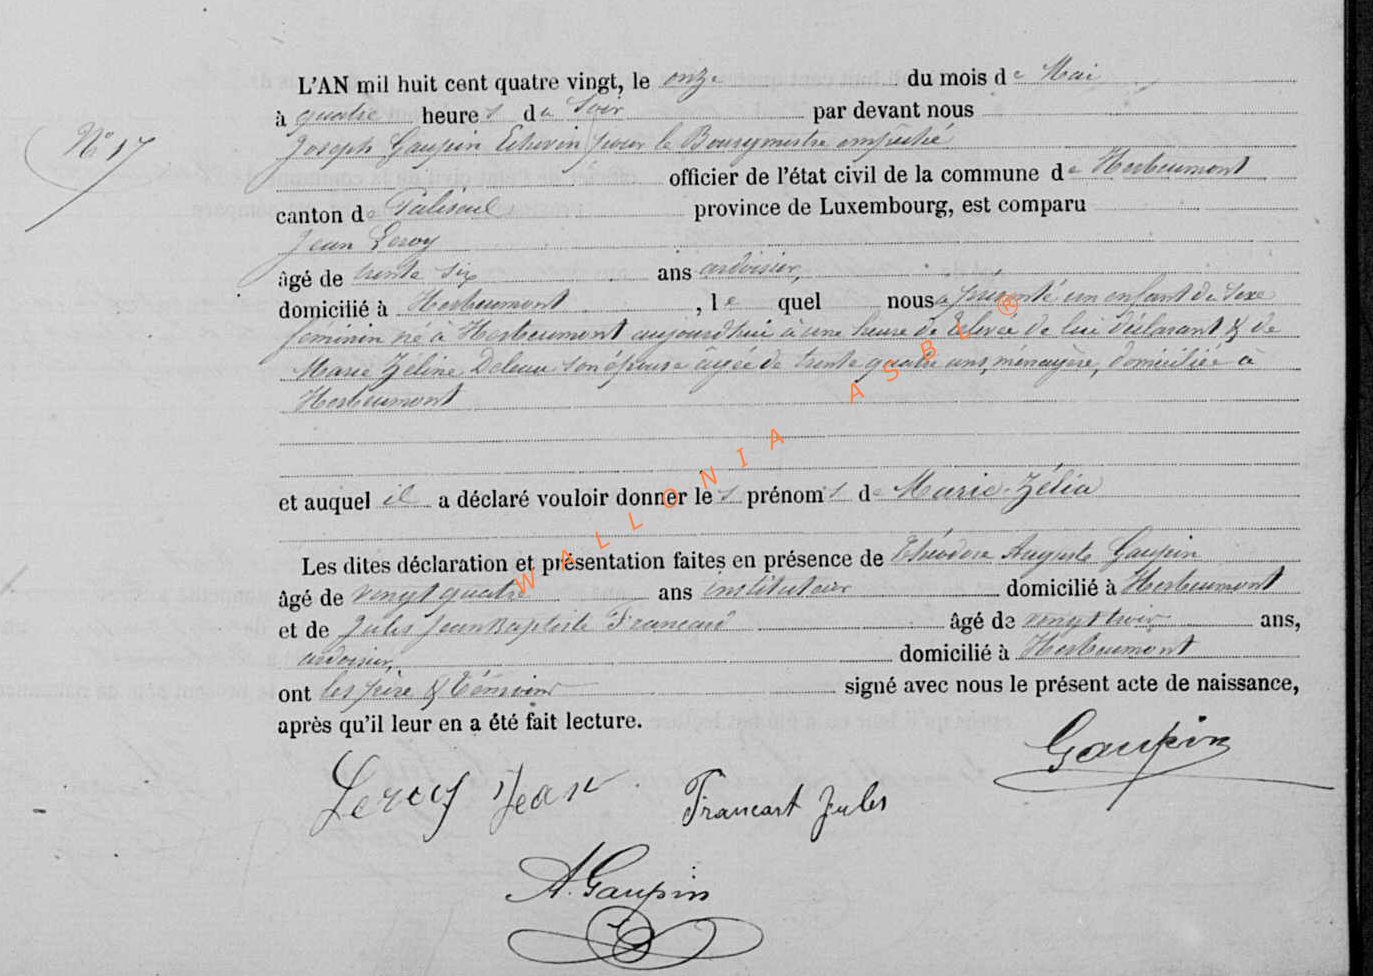 N° 17
L'AN mil huit cent quatre vingt, le onze du mois de Mai
à quatre heures du Soir par devant nous
Joseph Gaupin Echevin pour le Bourgmestre empêché
officier de l'état civil de la commune de Herbeumont
canton de Paliseul province de Luxembourg, est comparu
Jean Leroy
âgé de trente six ans ardoisier,
domicilié à Herbeumont, le quel nous a présenté un enfant du Sexe
féminin né à Herbeumont aujourd'hui à une heure de relevée de lui déclarant & de
Marie Zéline Deleau son épouse agée de trente quatre ans, ménagère, domiciliée à
Herbeumont
et auquel il a déclaré vouloir donner les prénoms de Marie-Zélia
Les dites déclaration et présentation faites en présence de Théodore Auguste Gaupin
âgé de vingt quatre ans instituteur domicilié à Herbeumont
et de Jules Jean Baptiste Francard âgé de vingt trois ans,
ardoisier, domicilié à Herbeumont
ont les père & témoins signé avec nous le présent acte de naissance,
après qu'il leur en a été fait lecture.
Gaupin
Leroy Jean Francart Jules
A. Gaupin
WALLONIA ASBL ®